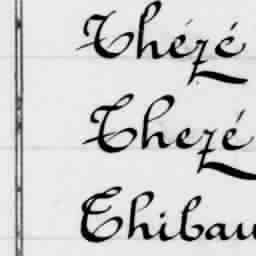 Thézé
Thezé
Thibau